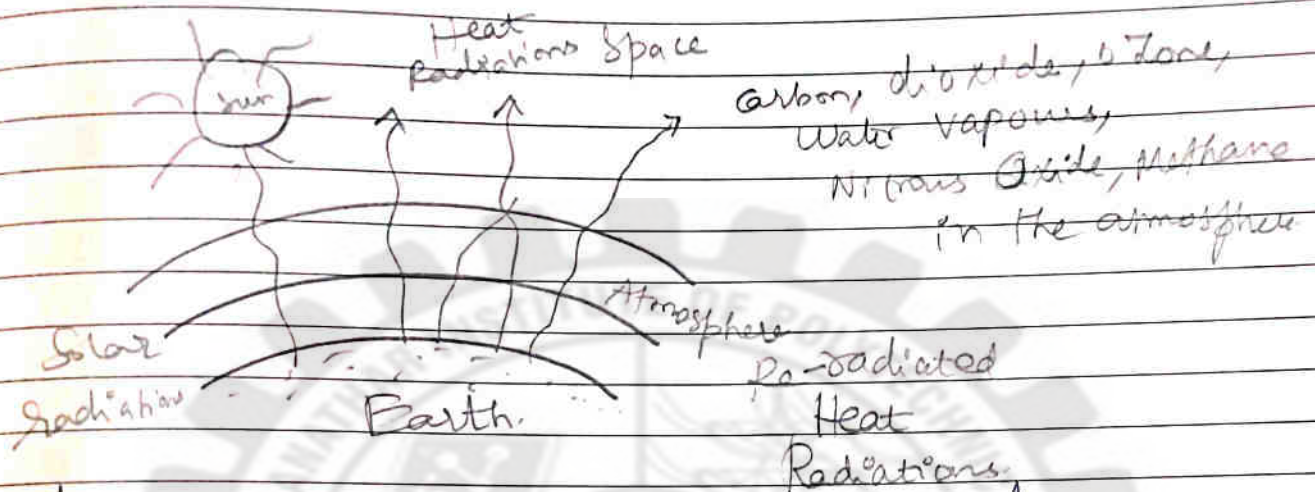 Heat
Radiations Space
Sun
Carbon, dioxide, Ozone,
Water Vapours,
Nitrous Oxide, Methane
in the atmosphere
Atmosphere
Solar
radiation
Earth.
Re-radiated
Heat
Radiations
INSTITUTE OF POLYTECHN